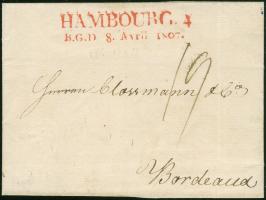 HAMBOURG. 4
B.G.D 8. Avril 1807.
19
Herren Clossmann & Co
Bordeaux